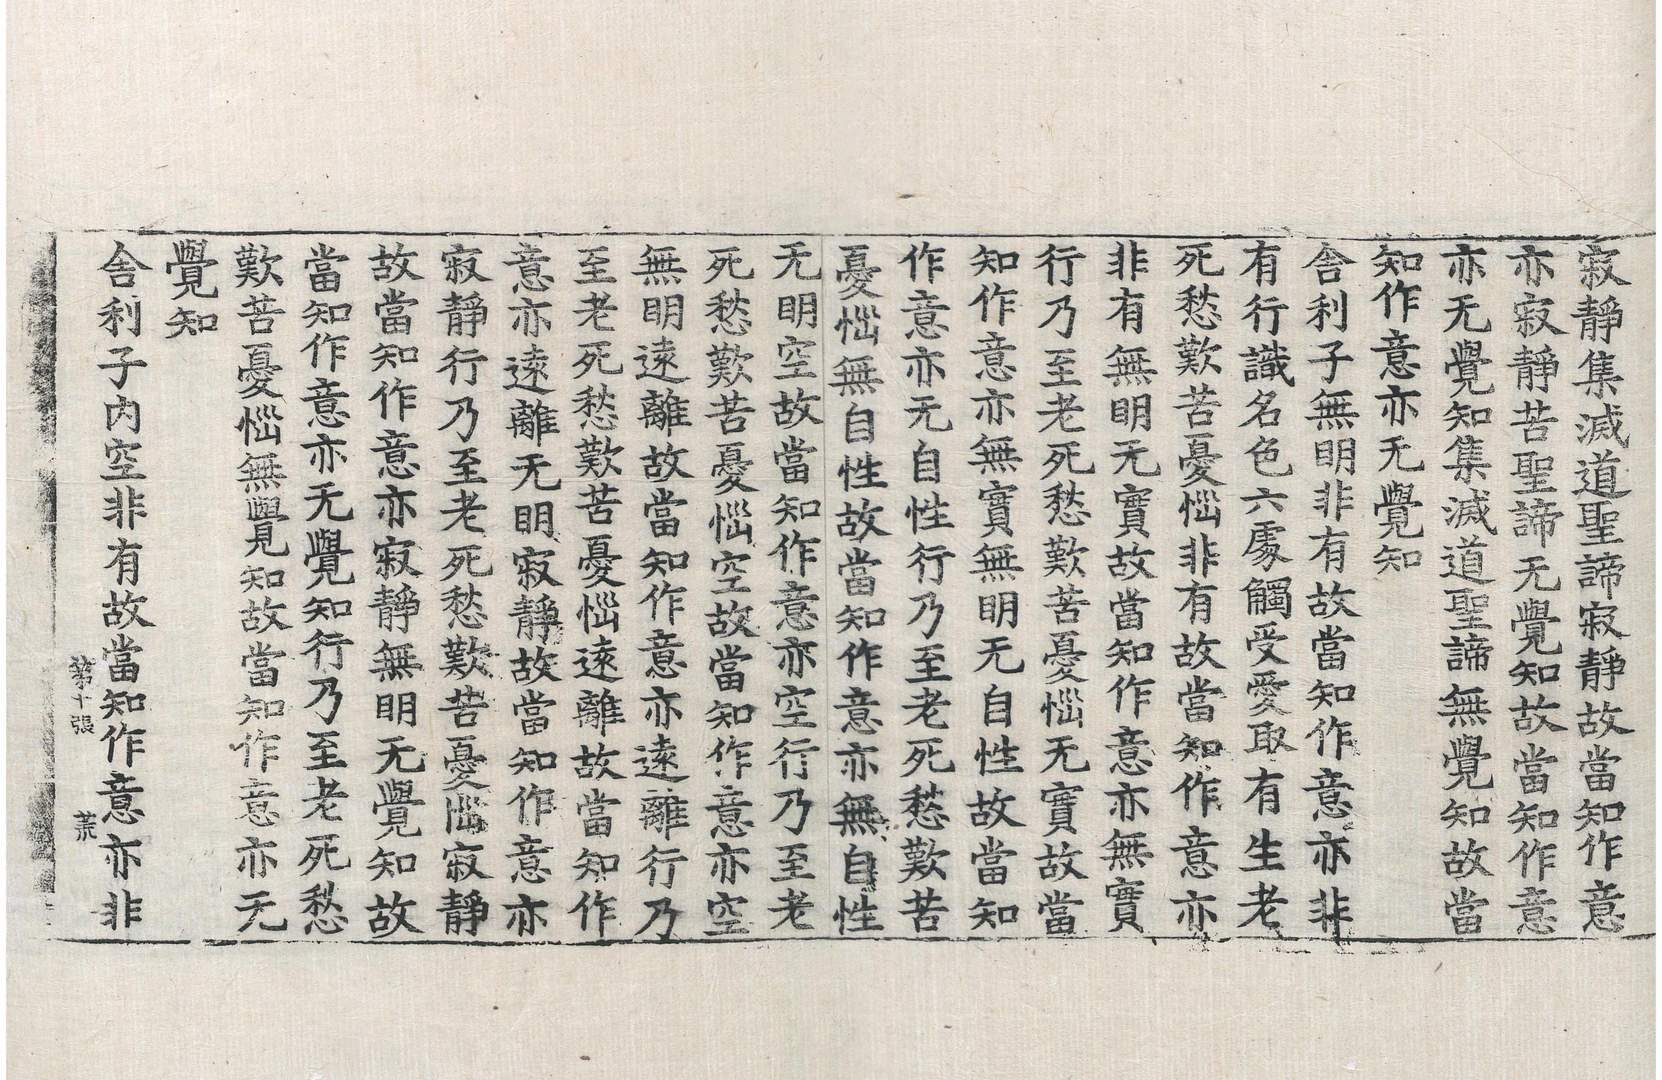 寂靜集滅道聖諦寂靜故當知作意
亦寂靜苦聖諦无覺知故當知作意
亦无覺知集滅道聖諦無覺知故當
知作意亦无覺知
舍利子無明非有故當知作意亦非
有行識名色六處觸受愛取有生老
死愁歎苦憂惱非有故當知作意亦
非有無明无實故當知作意亦無實
行乃至老死愁歎苦憂惱无實故當
知作意亦無實無明无自性故當知
作意亦无自性行乃至老死愁歎苦
憂惱無自性故當知作意亦無自性
无明空故當知作意亦空行乃至老
死愁歎苦憂惱空故當知作意亦空
無明遠離故當知作意亦遠離行乃
至老死愁歎苦憂惱遠離故當知作
意亦遠離无明寂靜故當知作意亦
寂靜行乃至老死愁歎苦憂惱寂靜
故當知作意亦寂靜無明无覺知故
當知作意亦无覺知行乃至老死愁
歎苦憂惱無覺知故當知作意亦无
覺知
舍利子內空非有故當知作意亦非
第十張 荒